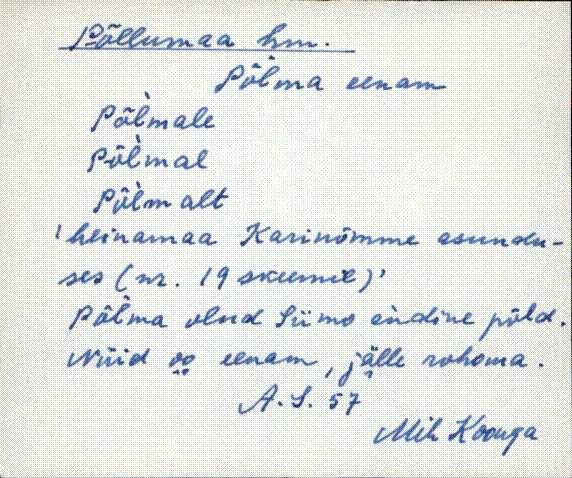 Põllumaa hm.
Pol̀ma eenam
Põl̀male
Põl̀mal
Põl̀malt
'heinamaa Karinõmme asundu-
ses (nr. 19 skeemil)'
Põl̀ma olnd Siimo endine põld.
Nüid oo eenam, jälle rohoma.
A.S. 57
Mih Koonga